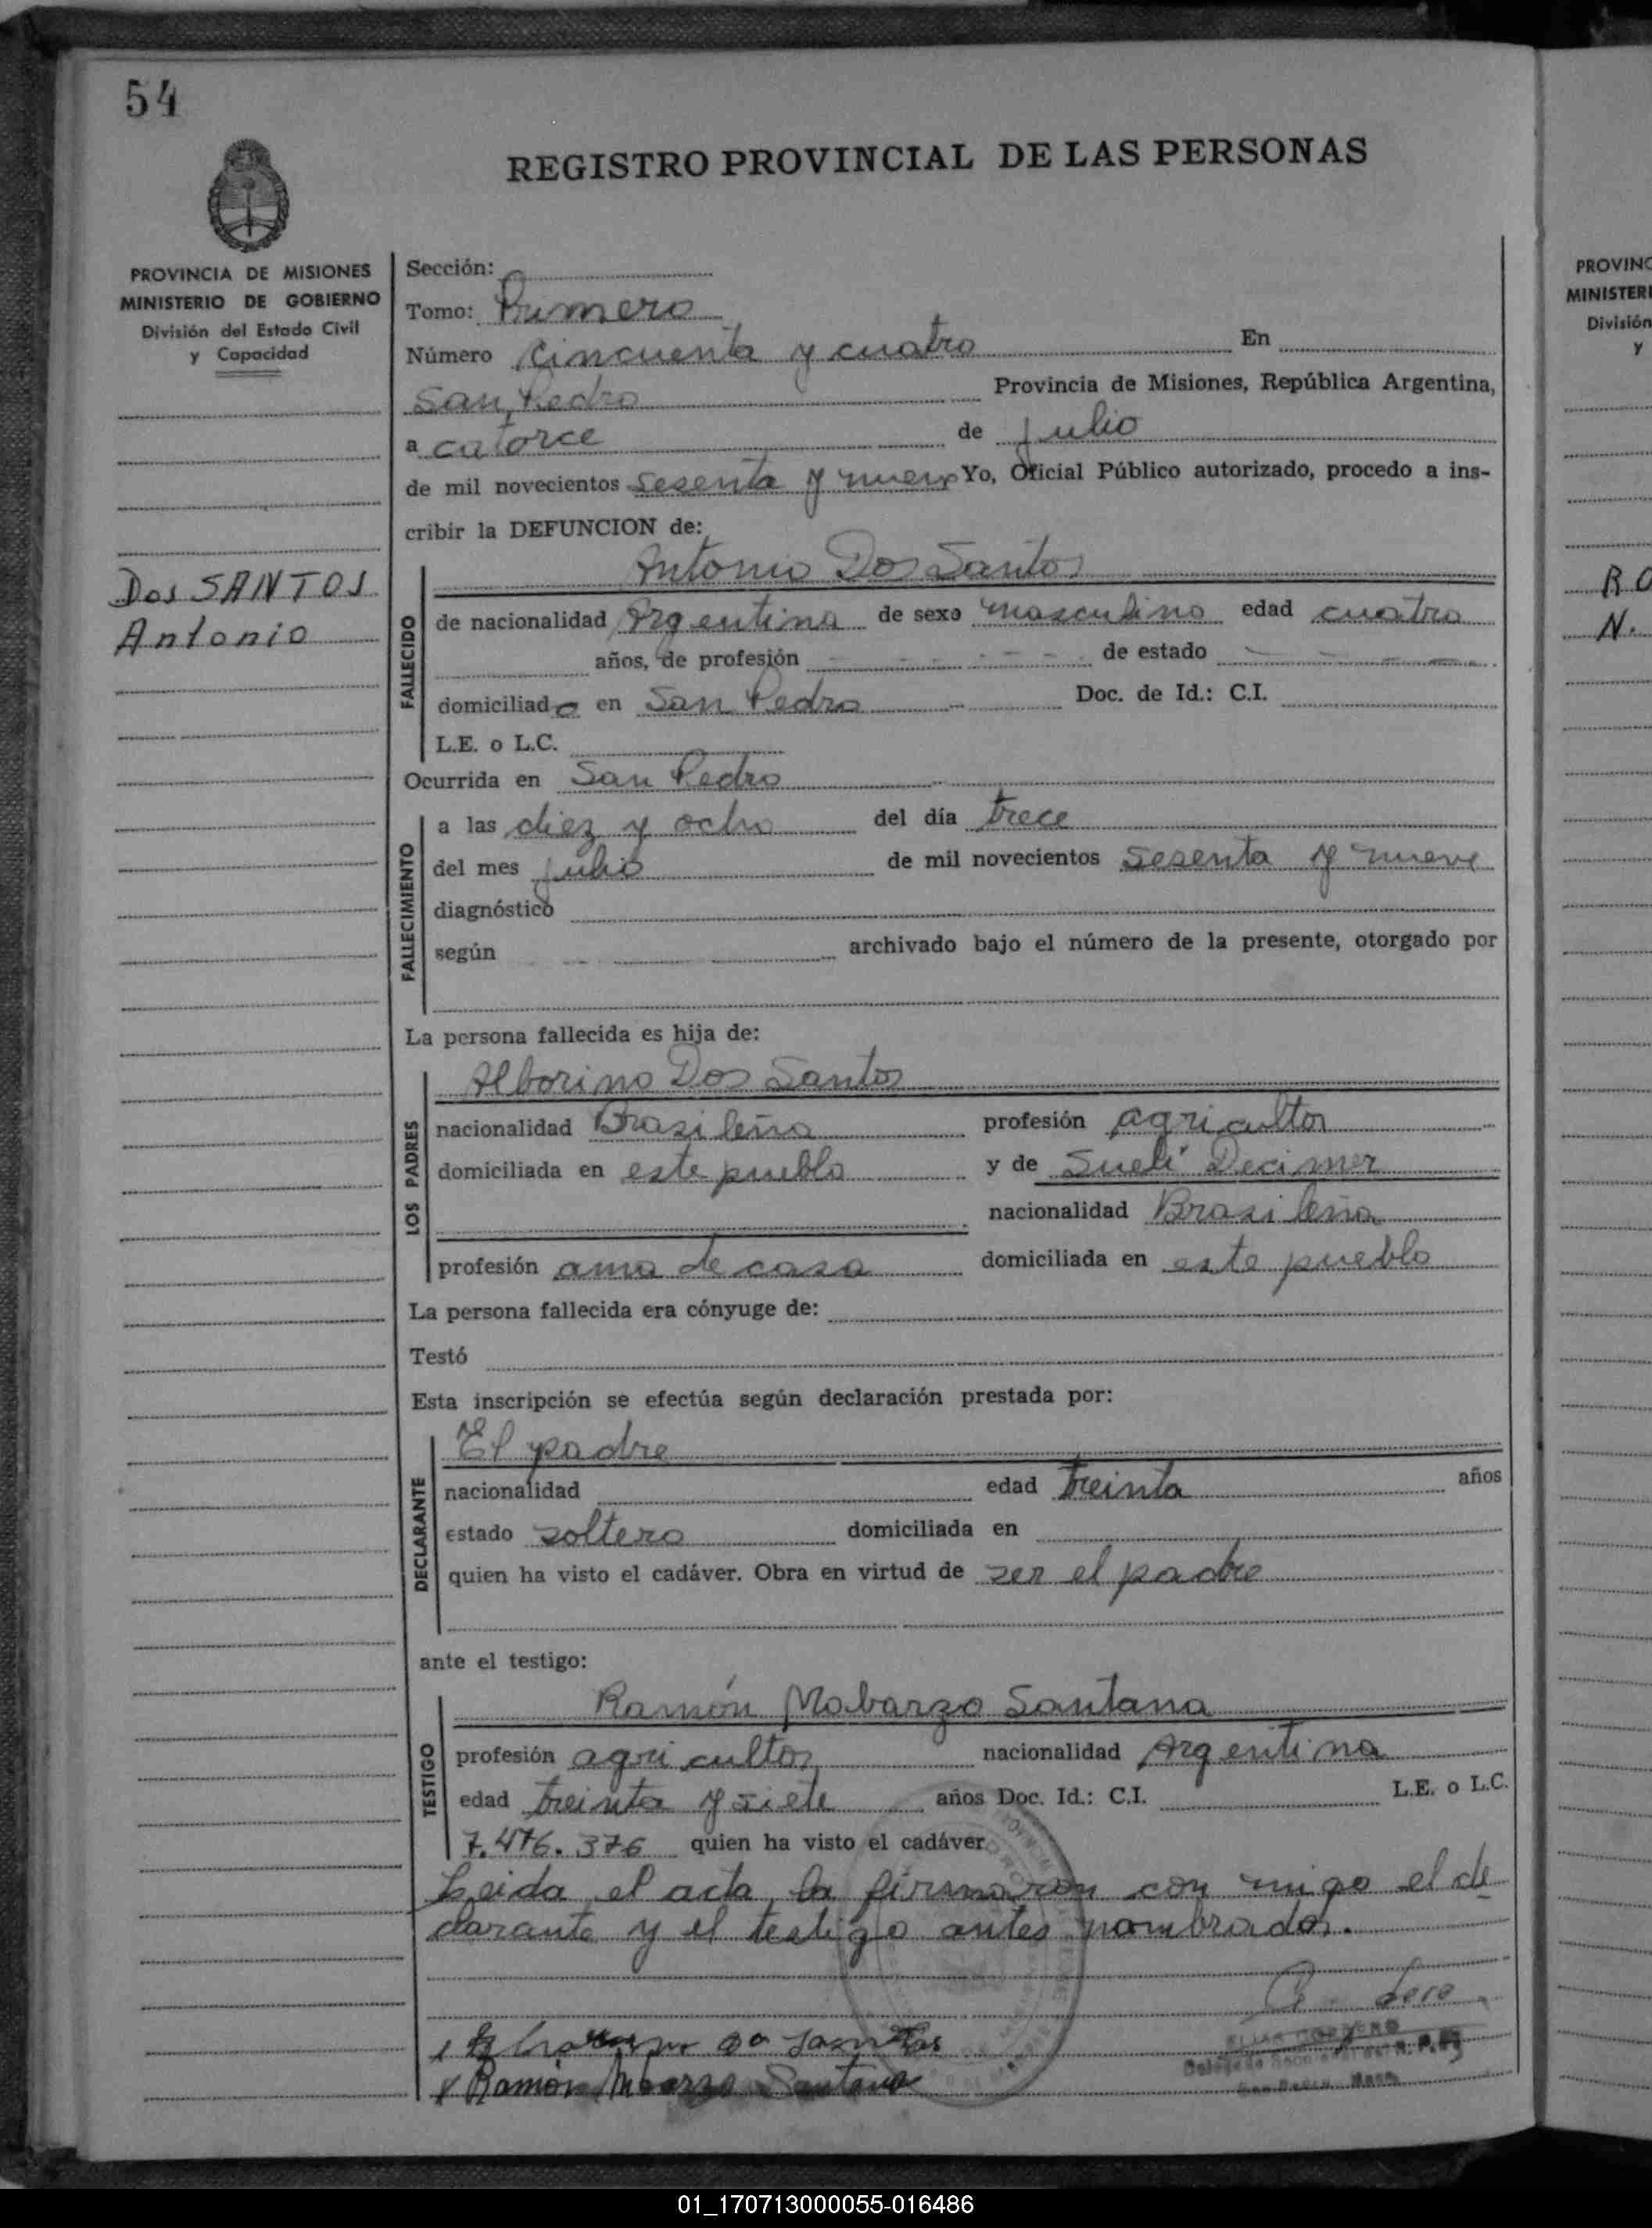 54
REGISTRO PROVINCIAL DE LAS PERSONAS
PROVINCIA DE MISIONES
MINISTERIO DE GOBIERNO
División del Estado Civil
y Capacidad
Dos SANTOS
Antonio
Sección:
Tomo: Primero
Número Cincuenta y cuatro En
San Pedro Provincia de Misiones, República Argentina,
a catorce de Julio
de mil novecientos sesenta y nueve Yo, Oficial Público autorizado, procedo a ins-
cribir la DEFUNCION de:
Antonio Dos Santos
FALLECIDO
de nacionalidad Argentina de sexo masculino edad cuatro
años, de profesión - - - - - de estado - - - -
domiciliado en San Pedro Doc. de Id.: C.I.
L.E. o L.C.
Ocurrida en San Pedro
FALLECIMIENTO
a las diez y ocho del día trece
del mes Julio de mil novecientos sesenta y nueve
diagnóstico
según archivado bajo el número de la presente, otorgado por
La persona fallecida es hija de:
LOS PADRES
Alborino Dos Santos
nacionalidad Brasileña profesión agricultor
domiciliada en este pueblo y de Suelí Decimer
nacionalidad Brasileña
profesión ama de casa domiciliada en este pueblo
La persona fallecida era cónyuge de:
Testó
Esta inscripción se efectúa según declaración prestada por:
DECLARANTE
El padre
nacionalidad edad treinta años
estado soltero domiciliada en
quien ha visto el cadáver. Obra en virtud de ser el padre
ante el testigo:
TESTIGO
Ramón Mobarzo Santana
profesión agricultor nacionalidad Argentina
edad treinta y siete años Doc. Id.: C.I. L.E. o L.C.
7.476.376 quien ha visto el cadáver
Leida el acta, la firmaron con migo el de
clarante y el testigo antes nombrados.
Ramón Santana
PROVINC
MINISTERI
División
y
01_170713000055-016486